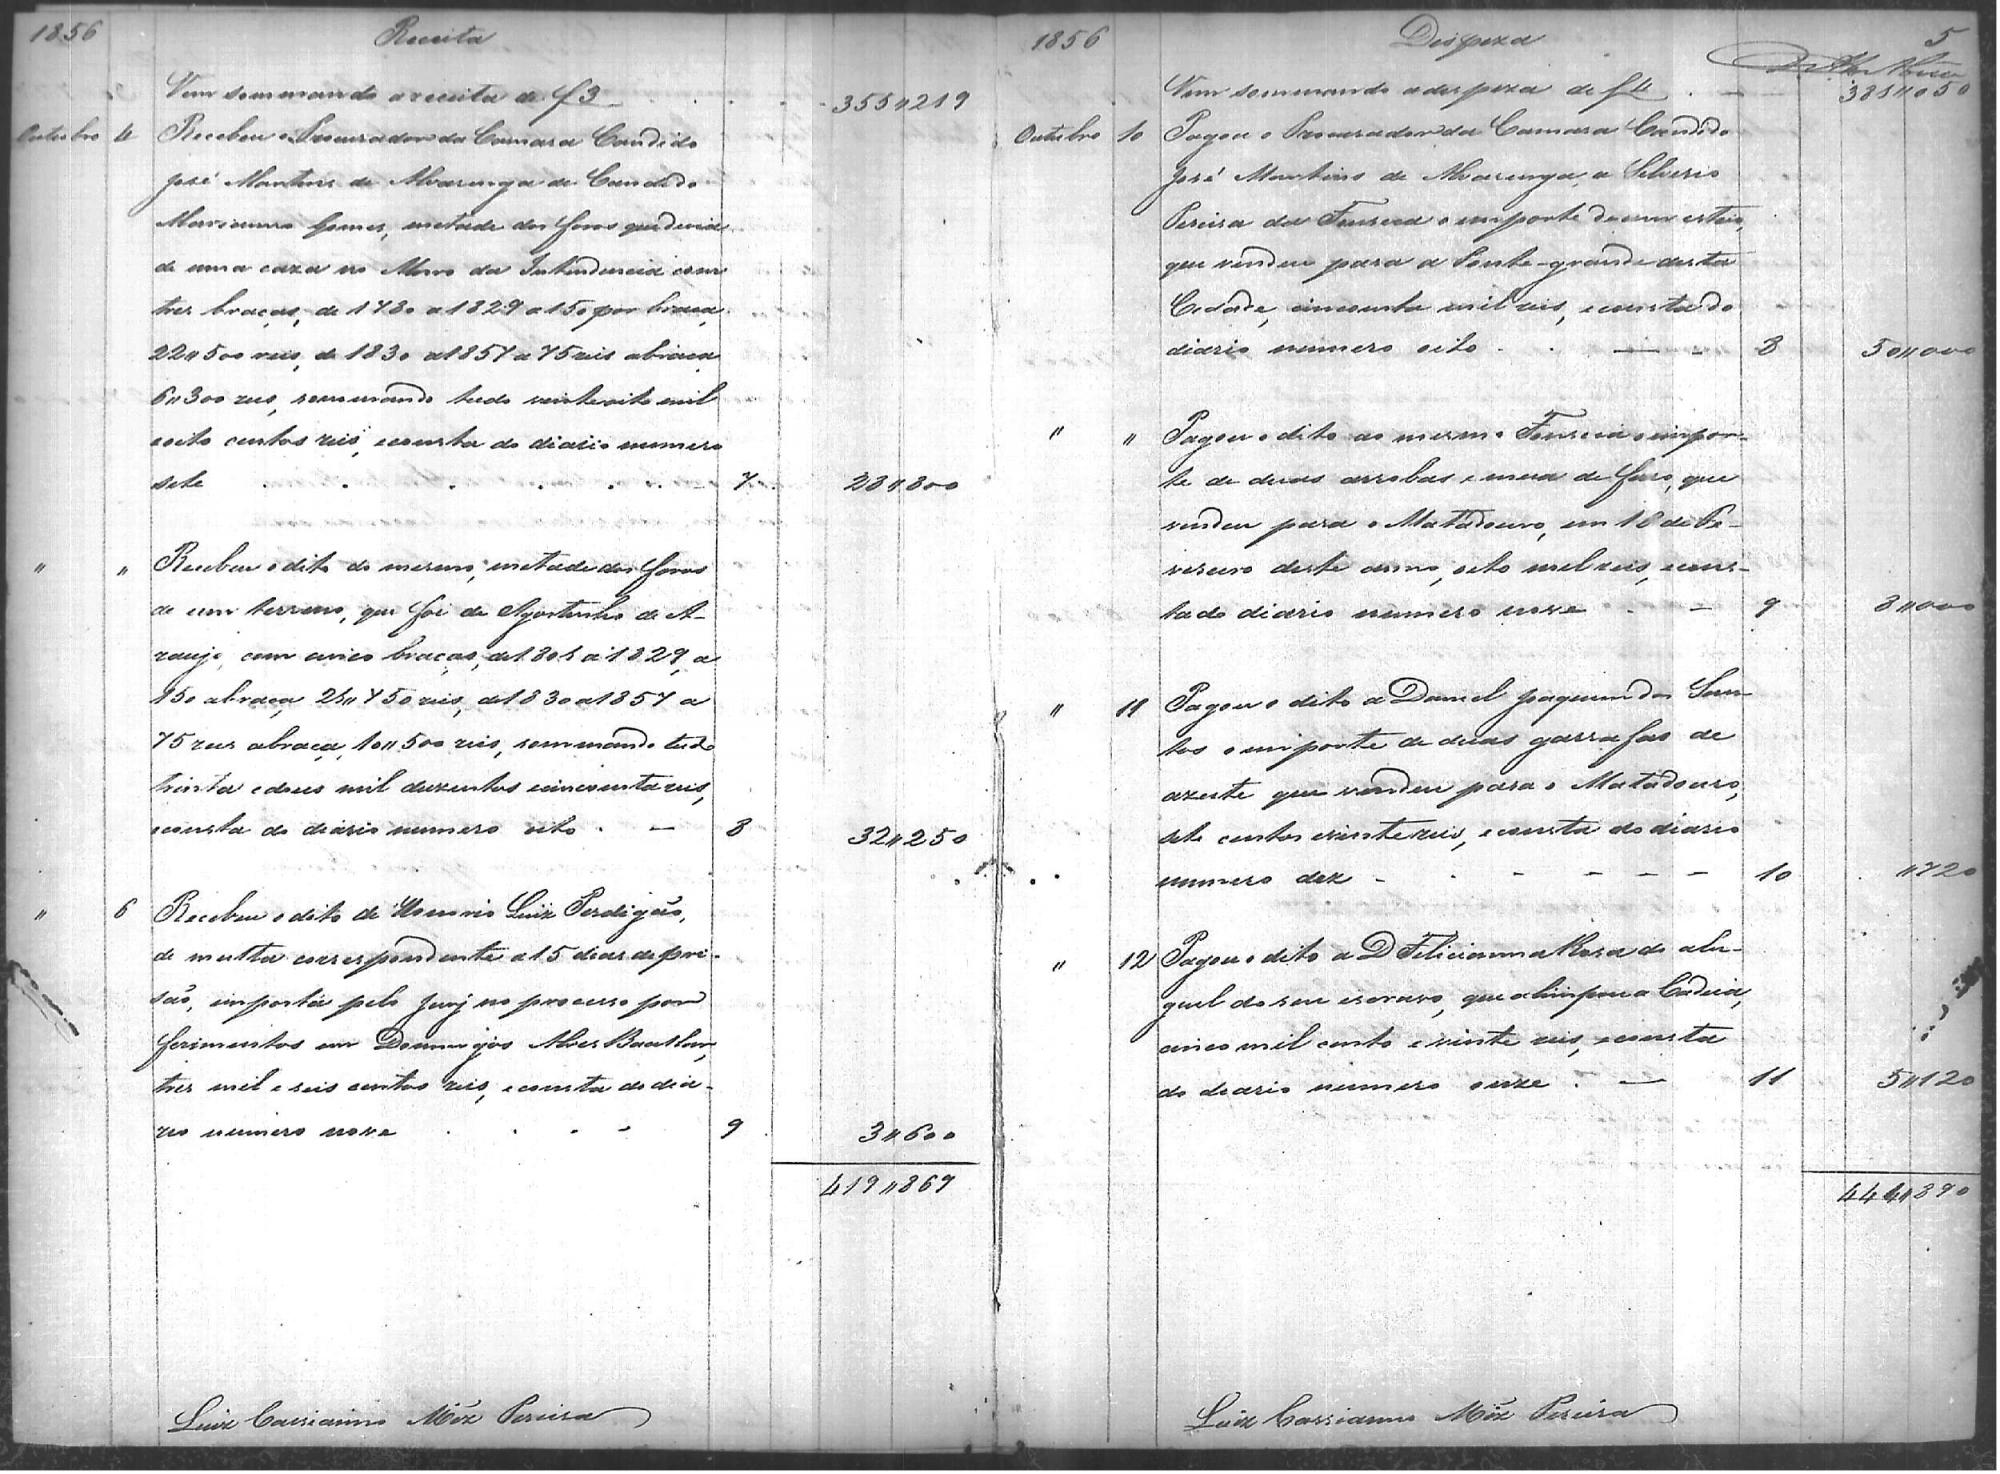 1856
Receita
Vem sommando a receita de f3 355"219
Outubro 4 Recebeu o Procurador da Camara Candido
José Martins de Alvarenga de Candido
Marianno Gomes, metade dos foros que devia
de uma caza no Morro da Intendencia com
tres braças, de 1780 a 1829 a 150 por braça,
22"500 reis, de 1830 a 1857 a 75 reis a braça
6"300 reis, sommando tudo vinte oito mil
e oito centos reis, e consta do diario numero
sete 7 28"800
" " Recebeu o dito do mesmo, metade dos foros
de um terreno, que foi de Agostinho de A-
raujo, com cinco braças, de 1801 a 1829, a
150 a braça, 21"750 reis, de 1830 a 1857 a
75 reis a braça, 10"500 reis, sommando tudo
trinta e dous mil duzentos e cincoenta reis,
e consta do diario numero oito 8 32"250
" 6 Recebeu o dito de Honorio Luiz Perdigão,
de multa correspondente a 15 dias de pri-
são, imposta pelo Jury no processo por
ferimentos em Domingos Alves
tres mil e seis centos reis, e consta do dia-
rio numero nove 9 3"600
419"869
Luiz Cassianno Miz Pereira
1856
Despeza
5
Vem sommando a despeza de f4 381"050
Outubro 10 Pagou o Procurador da Camara Candido
José Martins de Alvarenga, a Silverio
Pereira da Fonseca o importe de um esteio,
que vendeu para a Ponte-grande desta
Cidade, cincoenta mil reis, e consta do
diario numero oito 8 50"000
" " Pagou o dito ao mesmo Fonseca o impor-
te de duas arrobas e meia de ferro, que
vendeu para o Matadouro, em 18 de Fe-
vereiro deste anno, oito mil reis, e cons-
ta do diario numero nove 9 8"000
" 11 Pagou o dito a Daniel Joaquim dos San-
tos o importe de duas garrafas de
azeite que vendeu para o Matadouro,
sete centos e vinte reis, e consta do diario
numero dez 10 "720
" 12 Pagou o dito a D Felicianna Rosa do alu-
guel do seu escravo, que alimpou a Cadeia,
cinco mil cento e vinte reis, e consta
do diario numero onze 11 5"120
444"890
Luiz Cassianno Miz Pereira